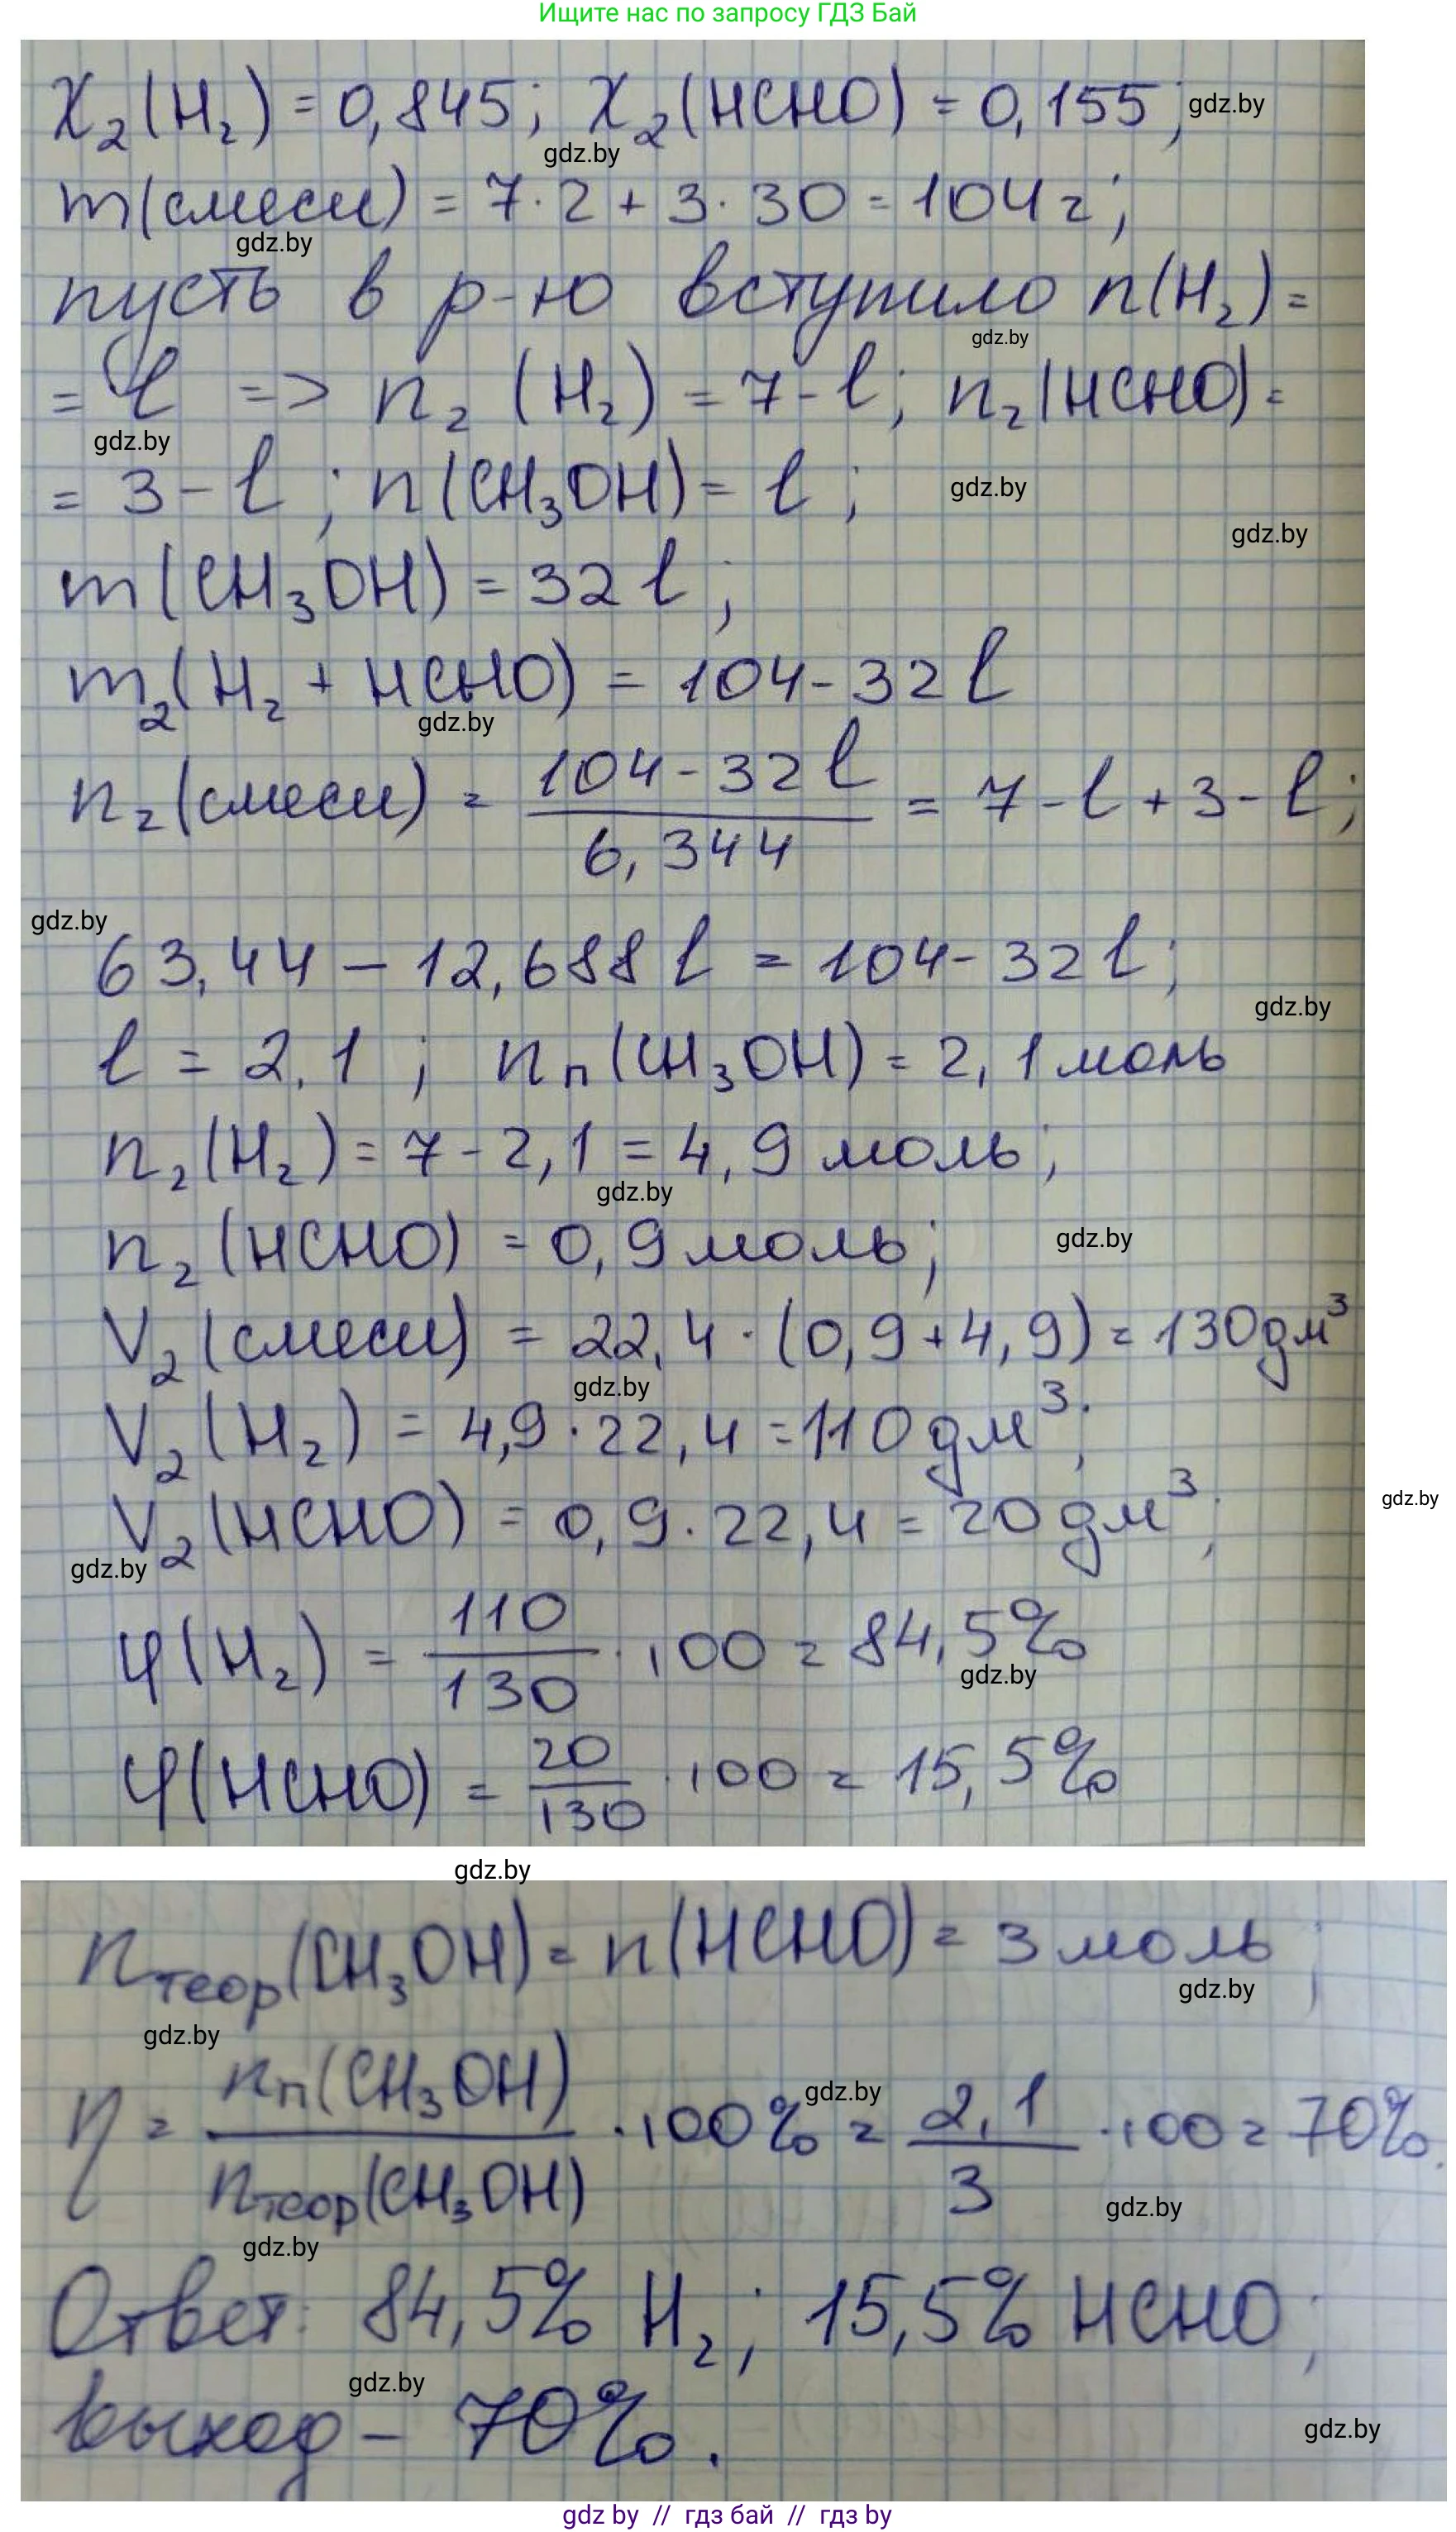 Ищите нас по запросу ГДЗ Бай
χ₂(H₂) = 0,845; χ₂(HCHO) = 0,155;
gdz.by
gdz.by
m(смеси) = 7·2 + 3·30 = 104 г;
gdz.by
пусть в р-ю вступило n(H₂) =
gdz.by
= l => n₂ (H₂) = 7-l; n₂(HCHO) =
gdz.by
= 3-l; n(CH₃OH) = l;
gdz.by
gdz.by
m(CH₃OH) = 32 l;
m₂(H₂ + HCHO) = 104-32 l
gdz.by
n₂(смеси) = (104-32 l)/6,344 = 7-l+3-l;
gdz.by
63,44 – 12,688 l = 104-32 l;
gdz.by
l = 2,1; nп(CH₃OH) = 2,1 моль
n₂(H₂) = 7-2,1 = 4,9 моль;
gdz.by
n₂(HCHO) = 0,9 моль;
gdz.by
V₂(смеси) = 22,4·(0,9+4,9) = 130 дм³
gdz.by
V₂(H₂) = 4,9·22,4 = 110 дм³;
gdz.by
V₂(HCHO) = 0,9·22,4 = 20 дм³;
gdz.by
φ(H₂) = 110/130 · 100 = 84,5%
gdz.by
φ(HCHO) = 20/130 · 100 = 15,5%
gdz.by
nтеор(CH₃OH) = n(HCHO) = 3 моль;
gdz.by
gdz.by
η = nп(CH₃OH)/nтеор(CH₃OH) · 100% = 2,1/3 · 100 = 70%.
gdz.by
gdz.by
gdz.by
Ответ: 84,5% H₂; 15,5% HCHO;
gdz.by
выход – 70%.
gdz.by
gdz by // гдз бай // гдз by